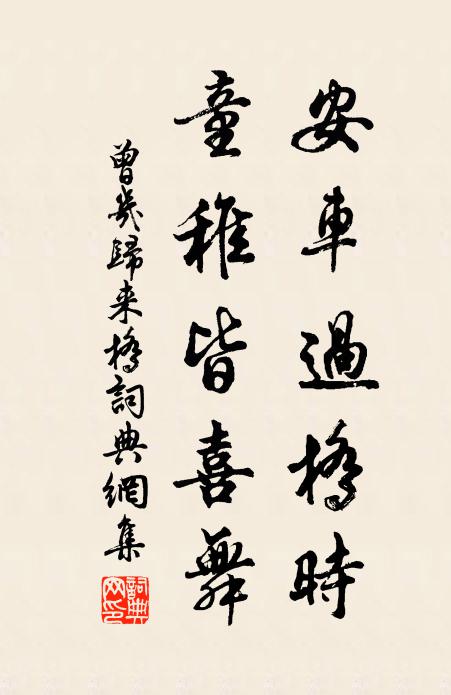 安車過橋時
童稚皆喜舞
曾幾歸来橋詞典網集
詞典网印